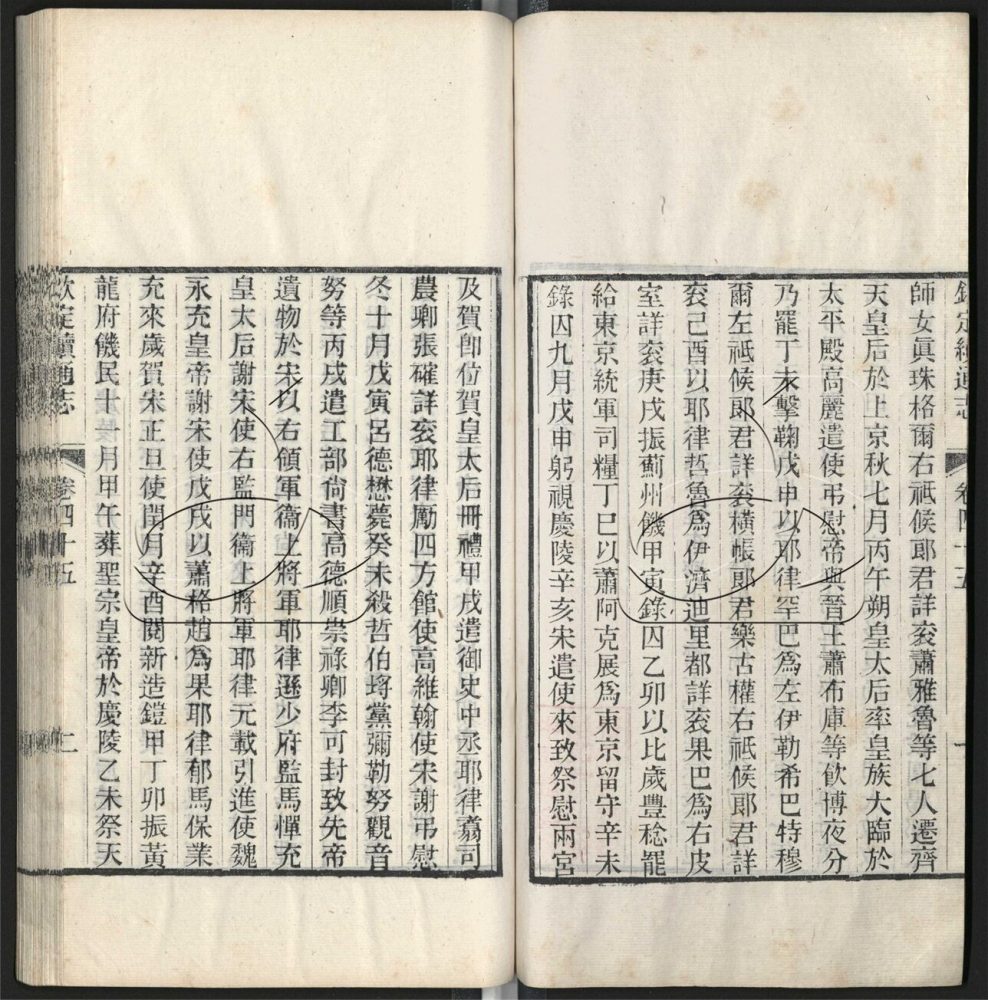 欽定續通志 卷四十五 一
師女眞珠格爾右祗候郎君詳袞蕭雅魯等七人遷齊
天皇后於上京秋七月丙午朔皇太后率皇族大臨於
太平殿高麗遣使弔慰帝與晉王蕭布庫等飲博夜分
乃罷丁未擊鞠戊申以耶律罕巴爲左伊勒希巴特穆
爾左祗候郎君詳袞橫帳郎君樂古權右祗候郎君詳
袞己酉以耶律哲魯爲伊濟迪里都詳袞果巴爲右皮
室詳袞庚戌振薊州饑甲寅錄囚乙卯以比歲豐稔罷
給東京統軍司糧丁巳以蕭阿克展爲東京留守辛未
錄囚九月戊申躬視慶陵辛亥宋遣使來致祭慰兩宮
及賀卽位賀皇太后冊禮甲戌遣御史中丞耶律翥司
農卿張確詳袞耶律勵四方館使高維翰使宋謝弔慰
冬十月戊寅呂德懋薨癸未殺哲伯埒黨彌勒努觀音
努等丙戌遣工部尙書高德順崇祿卿李可封致先帝
遺物於宋以右領軍衞上將軍耶律遜少府監馬憚充
皇太后謝宋使右監門衞上將軍耶律元載引進使魏
永充皇帝謝宋使戊戌以蕭格趙爲果耶律郁馬保業
充來歲賀宋正旦使閏月辛酉閱新造鎧甲丁卯振黃
龍府饑民十一月甲午葬聖宗皇帝於慶陵乙未祭天
欽定續通志 卷四十五 二